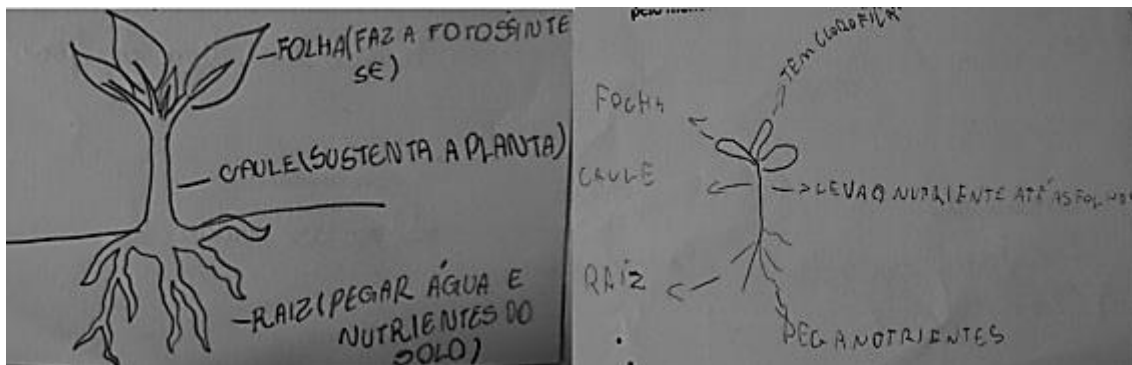 FOLHA(FAZ A FOTOSSÍNTE
SE)
CAULE(SUSTENTA A PLANTA)
RAIZ(PEGAR ÁGUA E
NUTRIENTES DO
SOLO)
TEM CLOROFILA
FOLHA
CAULE
LEVA O NUTRIENTE ATÉ AS FOLHAS
RAÍZ
PEGA NOTRIENTES